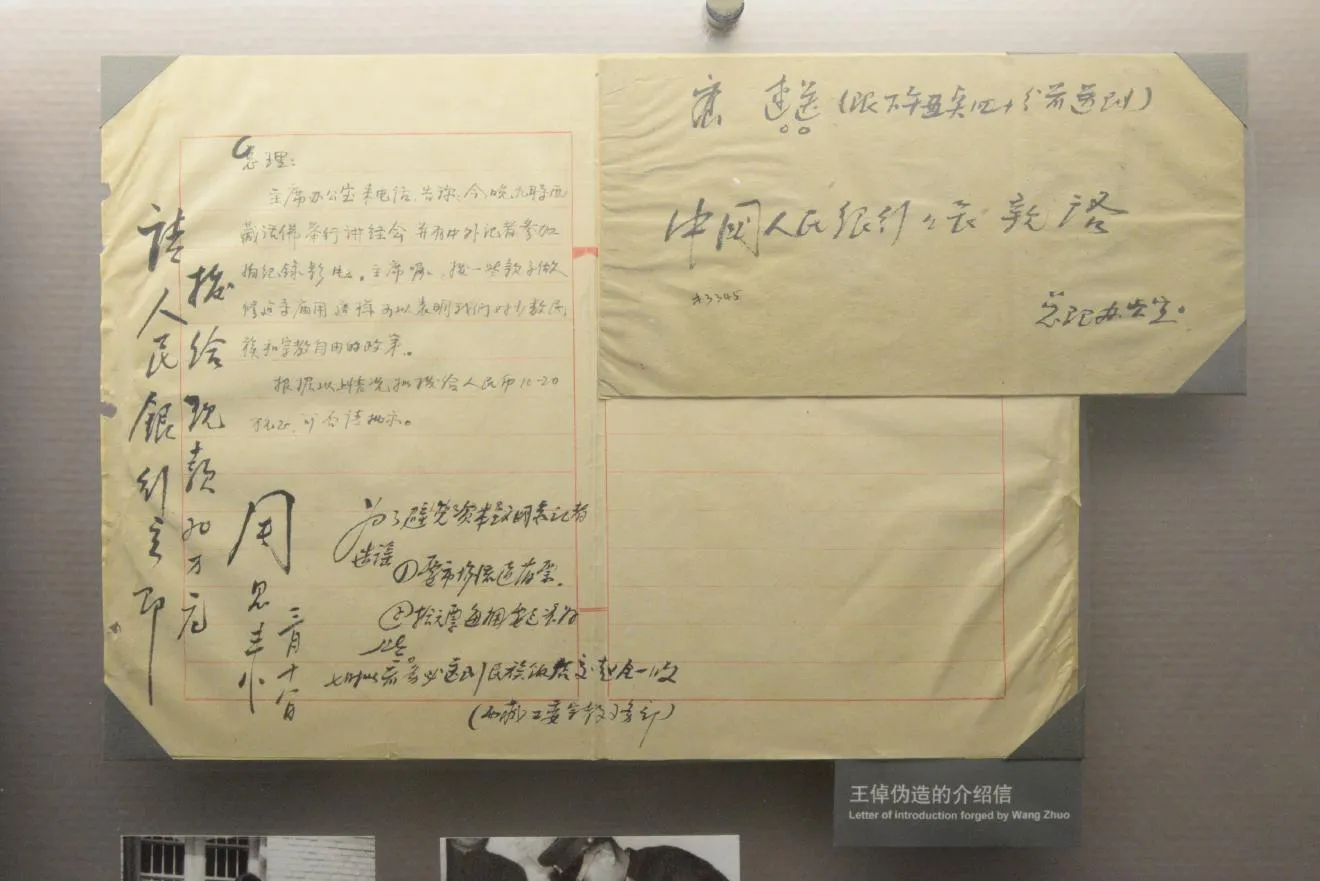 总理:
主席办公室来电话,告称:今晚九时西
藏活佛举行讲经会 并有中外记者参加
拍纪录影片。主席嘱,拨一些款子做
修建寺庙用 这样可以表明我们对少数民
族和宗教自由的政策。
根据以上情况拟拨给人民币15-20
万元正,可否请批示。
请人民銀行立即
拨给现款20万元
周恩来
三月十八日
为了避免资本主义国家记者
造谣
①要市场流通旧票。
②拾元票每捆要包装好
一些
七时以前务必送到民族饭店交赵全一收
(西藏工委宗教事务处)
速送(限下午五点四十分前送到)
中国人民银行 亲啓
总理办公室。
王倬伪造的介绍信
Letter of introduction forged by Wang Zhuo